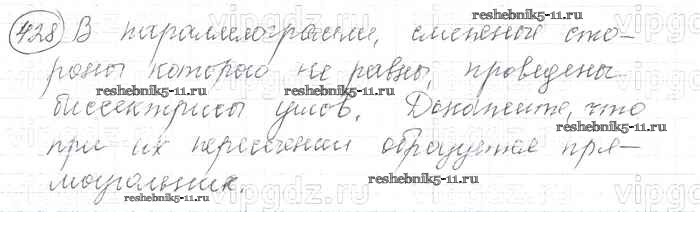 428 В параллелограмме, смежные сто-
роны которого не равны, проведены
биссектрисы углов. Докажите, что
при их пересечении образуется пря-
моугольник.
reshebnik5-11.ru
reshebnik5-11.ru
reshebnik5-11.ru
reshebnik5-11.ru
reshebnik5-11.ru
vipgdz.ru
vipgdz.ru
vipgdz.ru